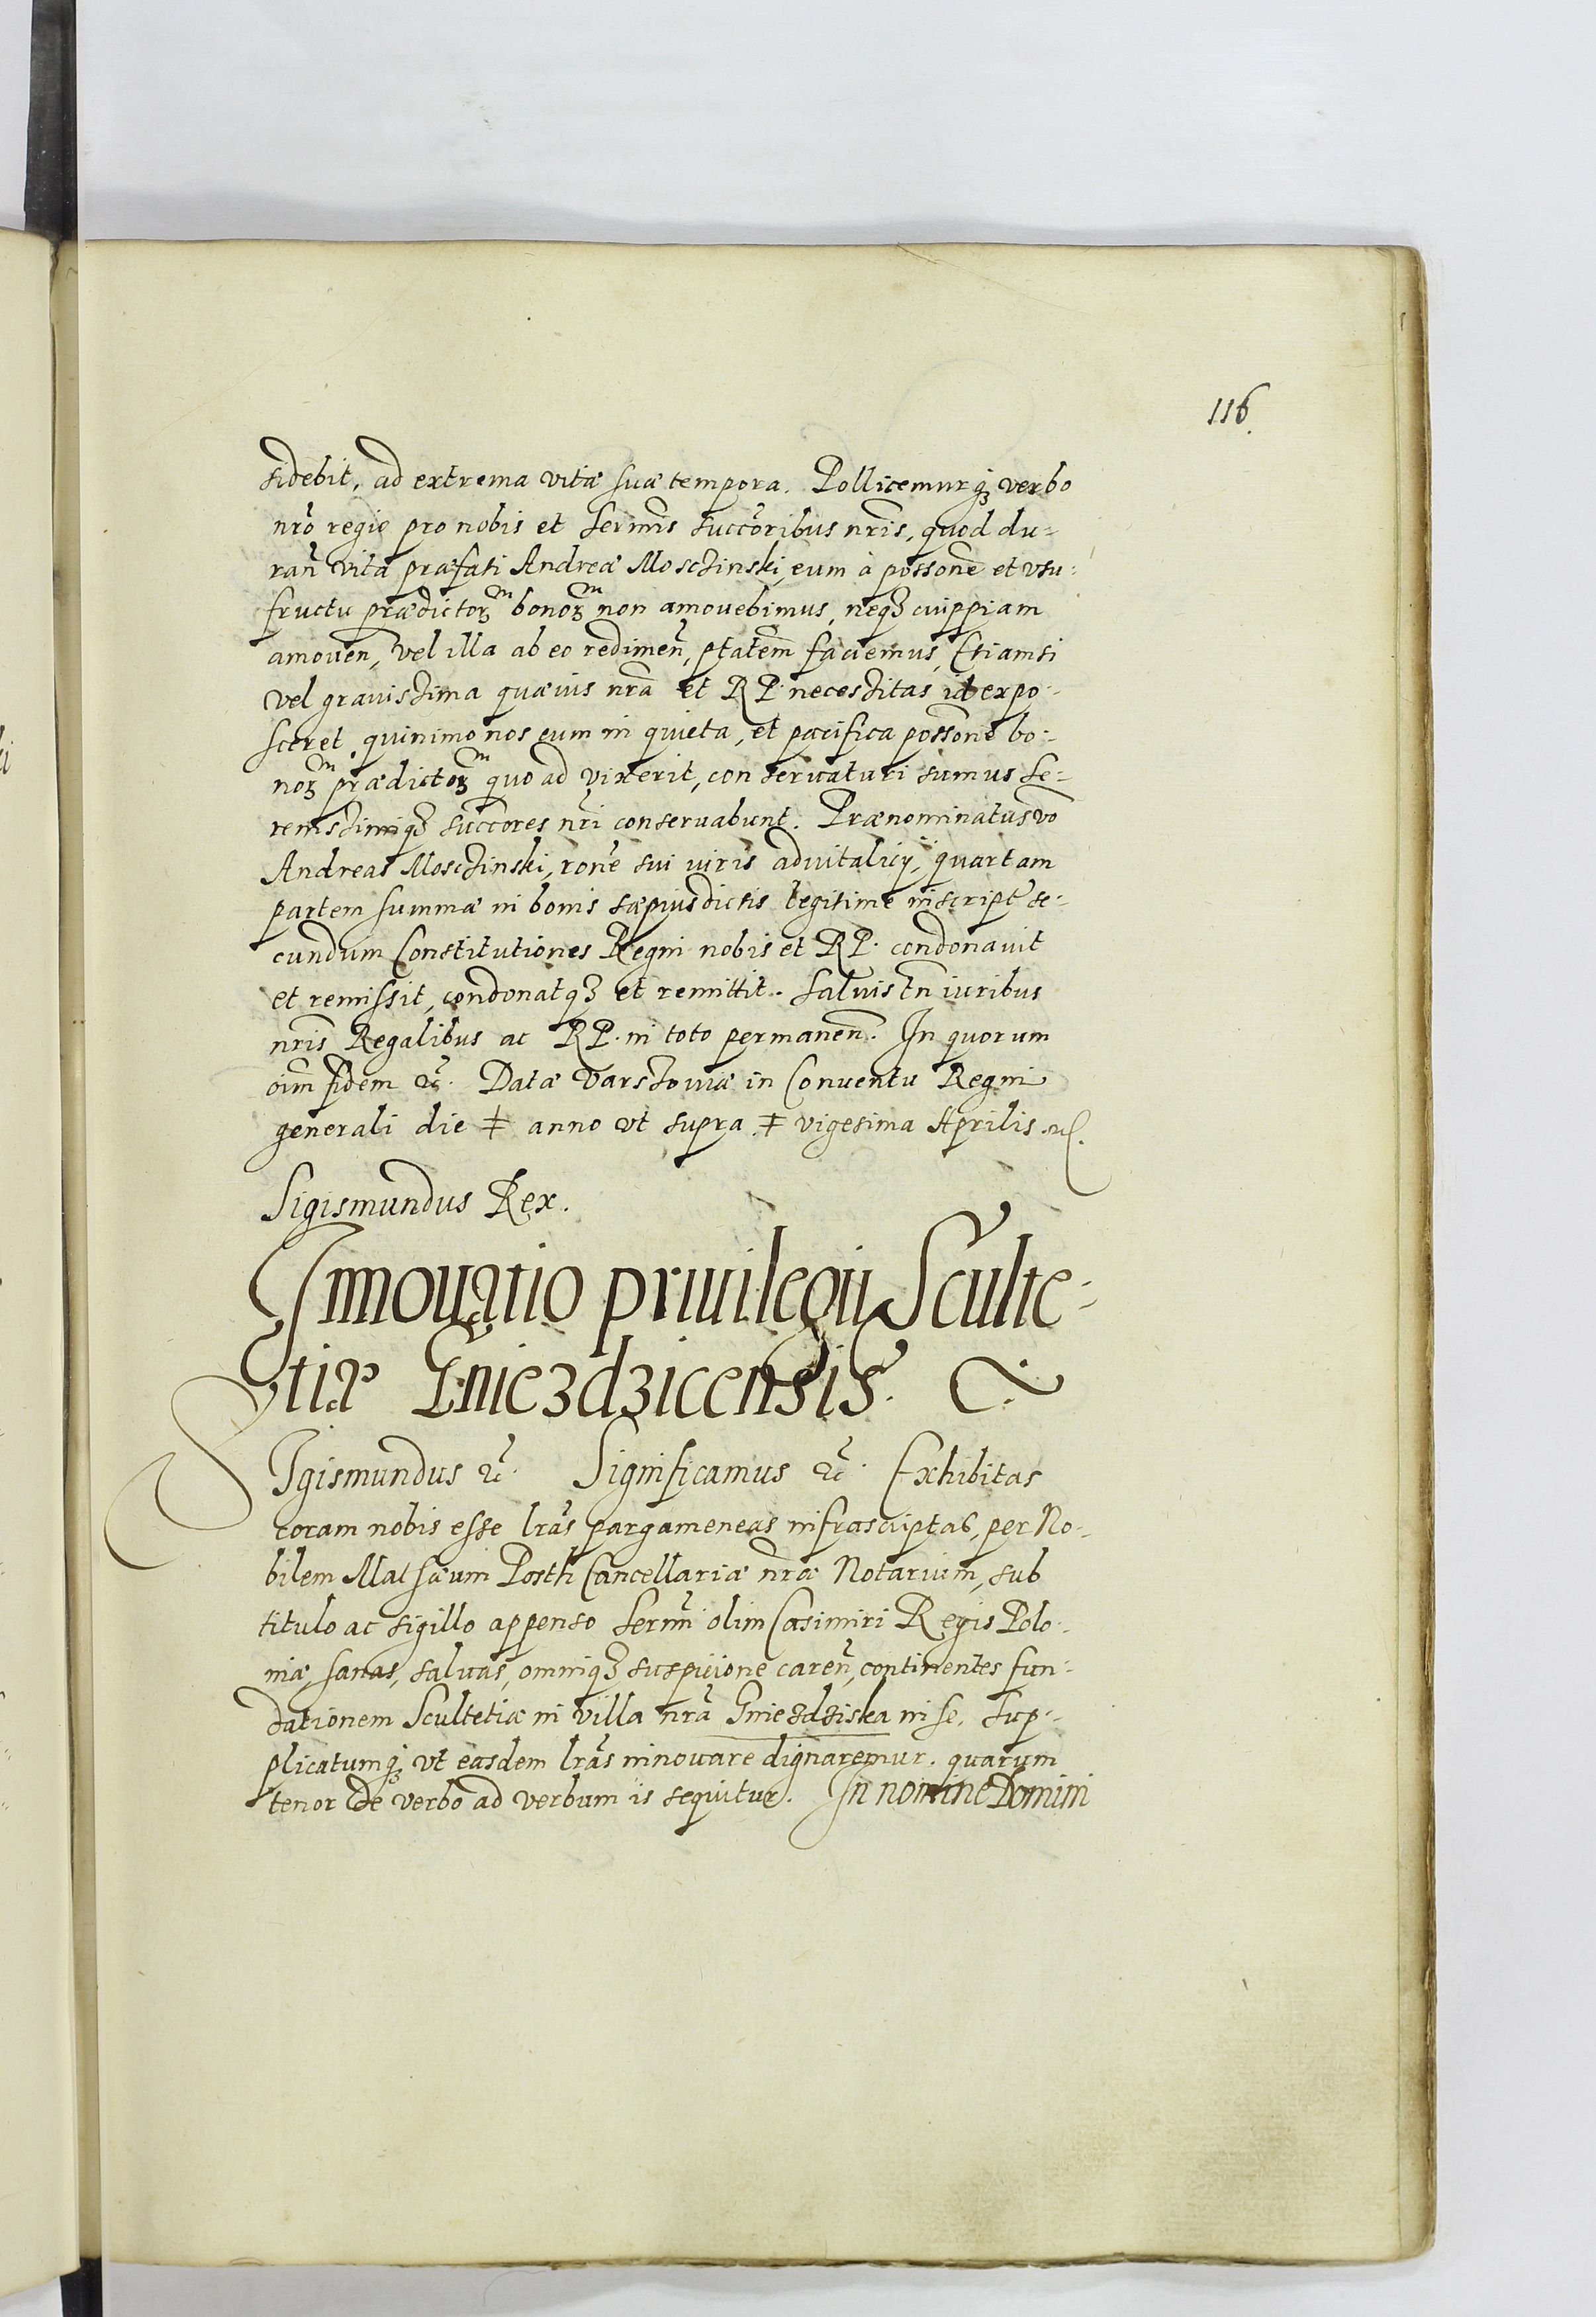 116.
sidebit, ad extrema vitæ suæ tempora. Pollicemurqꝫ verbo
nrõ regio pro nobis et Sermis̃ succõribus nrĩs, quod du-
rañ vita præfati Andreæ Moschinski, eum à possonẽ et vsu-
fructu prædictoꝝ bonoꝝ non amovebimus, neqꝫ cuippiam
amoveñ, vel illa ab eo redimeñ, ptatẽm faciemus, Etiamsi
vel gravissima quævis nrã et RP. necessitas id expo-
sceret, quinimo nos eum in quieta, et pacifica possonẽ bo-
noꝝ prædictoꝝ quo ad vixerit, conservaturi sumus Se-
renissimiqꝫ succõres nrĩ conservabunt. Prænominatus võ
Andreas Moschinski, ronẽ sui iuris advitalicij, quartam
partem summæ in bonis sæpiusdictis legitime inscript̃ se-
cundum Constitutiones Regni nobis et RP. condonavit
et remissit, condonatqꝫ et remittit. Salvis tñ iuribus
nrĩs Regalibus ac RP. in toto permaneñ. In quorum
oĩm fidem ꝛc̃. Datæ Varssoviæ in Conventu Regni
generali die ‡ anno vt supra ‡ vigesima Aprilis
Sigismundus Rex.
Innouatio priuilegii Sculte-
tiæ Gniezdzicensis.
SIgismundus ꝛc̃. Significamus ꝛc̃. Exhibitas
coram nobis esse lrãs pargameneas infrascriptas, per No-
bilem Matthæum Posth Cancellariæ nrãe Notarium, sub
titulo ac sigillo appenso Sermĩ olim Casimiri Regis Polo-
niæ, sanas, salvas, omniqꝫ suspicione careñ, continentes fun-
dationem Scultetiæ in villa nrã Gniezdziska in se. Sup-
plicatumqꝫ vt easdem lrãs innovare dignaremur. quarum
tenor de verbo ad verbum is sequitur. In nomine Domini